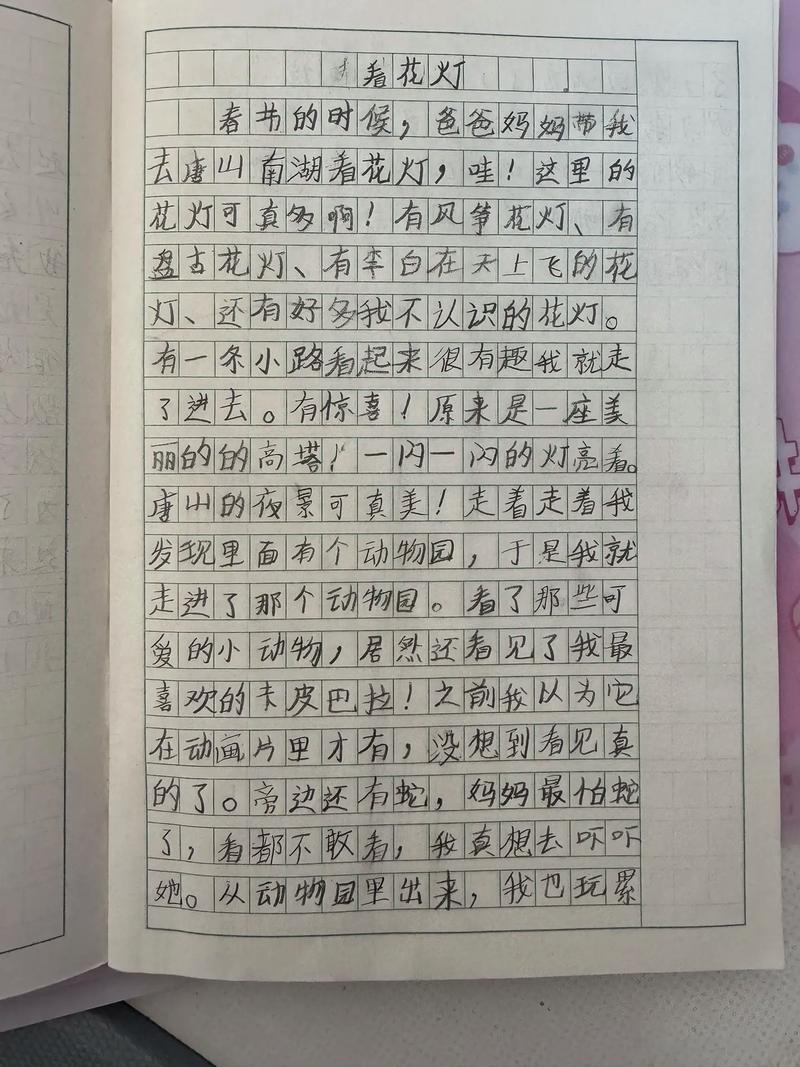 看花灯
春节的时候，爸爸妈妈带我
去唐山南湖看花灯，哇！这里的
花灯可真多啊！有风筝花灯、有
盘古花灯、有李白在天上飞的花
灯、还有好多我不认识的花灯。
有一条小路看起来很有趣我就走
了进去。有惊喜！原来是一座美
丽的的高塔！一闪一闪的灯亮着。
唐山的夜景可真美！走着走着我
发现里面有个动物园，于是我就
走进了那个动物园。看了那些可
爱的小动物，居然还看见了我最
喜欢的卡皮巴拉！之前我以为它
在动画片里才有，没想到看见真
的了。旁边还有蛇，妈妈最怕蛇
了，看都不敢看，我真想去吓吓
她。从动物园里出来，我也玩累